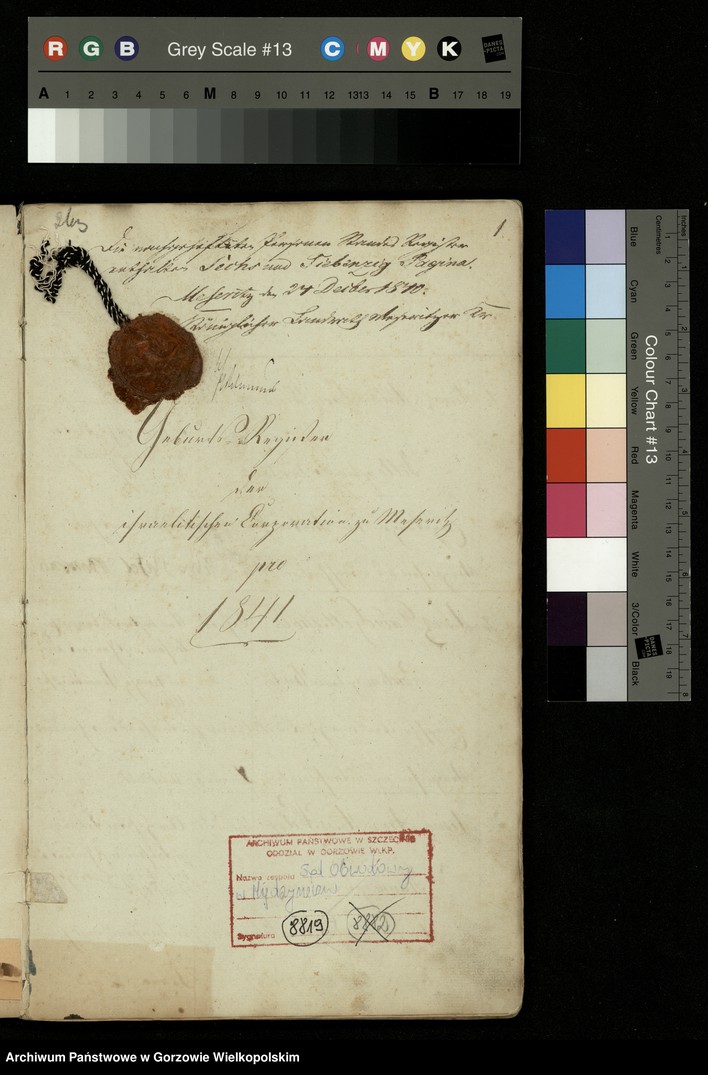 R G B Grey Scale #13 C M Y K DANES-PICTA.COM
A 1 2 3 4 5 6 M 8 9 10 11 12 13 13 14 15 B 17 18 19
1.
Die nachgeheftete Personen Standes Register
enthalten Sechs und Siebenzig Pagina.
Meseritz den 24 Decbr 1840.
Königlicher Landrath Meseritzer Kr.
Geburts-Register
der
israelitischen Corporation zu Meseritz
pro
1841
ARCHIWUM PAŃSTWOWE W SZCZECINIE
ODDZIAŁ W GORZOWIE WLKP.
Nazwa zespołu Sąd Obwodowy
w Międzyrzeczu
Sygnatura 8819 8882
Inches
Centimetres
Colour Chart #13
Blue
Cyan
Green
Yellow
Red
Magenta
White
3/Color
Black
DANES-PICTA.COM
Archiwum Państwowe w Gorzowie Wielkopolskim